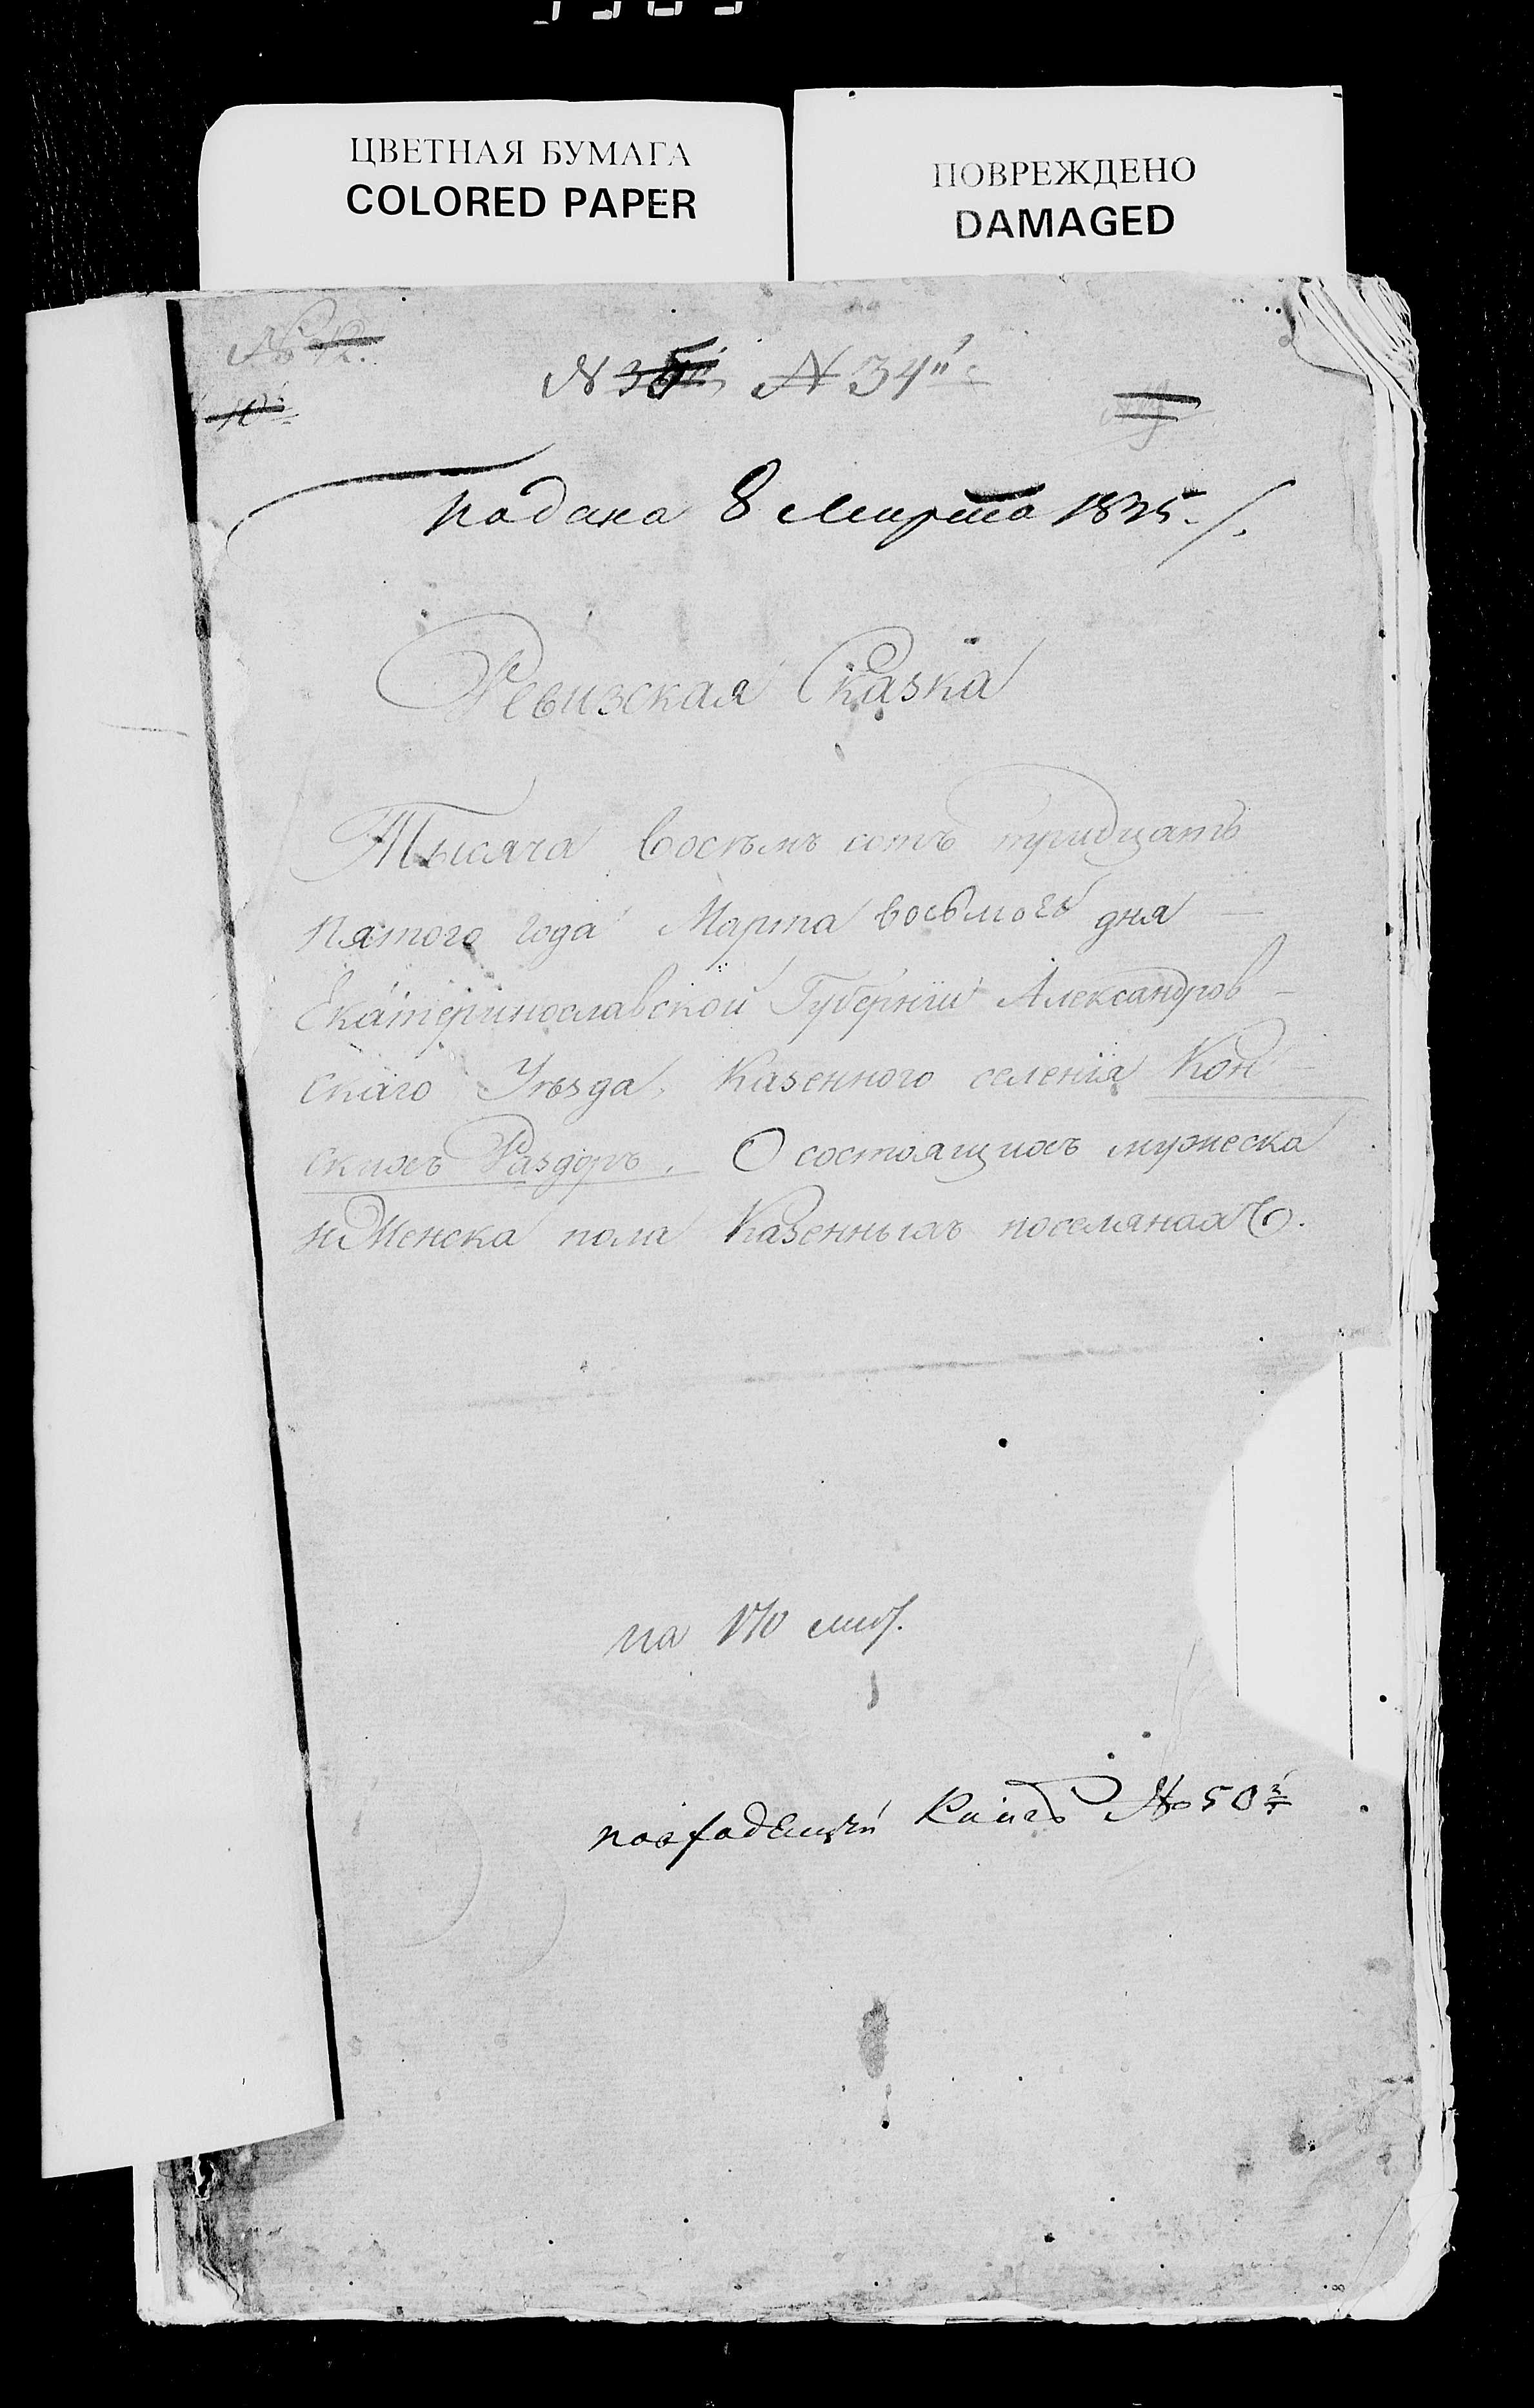 ЦВЕТНАЯ БУМАГА
COLORED PAPER
ПОВРЕЖДЕНО
DAMAGED
№ 12.
№ 34
Подана 8 Марта 1835.
Ревизская Сказка
Тысяча восемь сотъ тридцать
пятого года Марта восьмого дня —
Екатеринославской Губерніи Александров-
скаго Уѣзда, Казенного селенія Кон-
скихъ Раздоръ. О состоящихъ мужеска
и Женска пола Казенныхъ поселянахъ.
на 170 лис.
№ 50